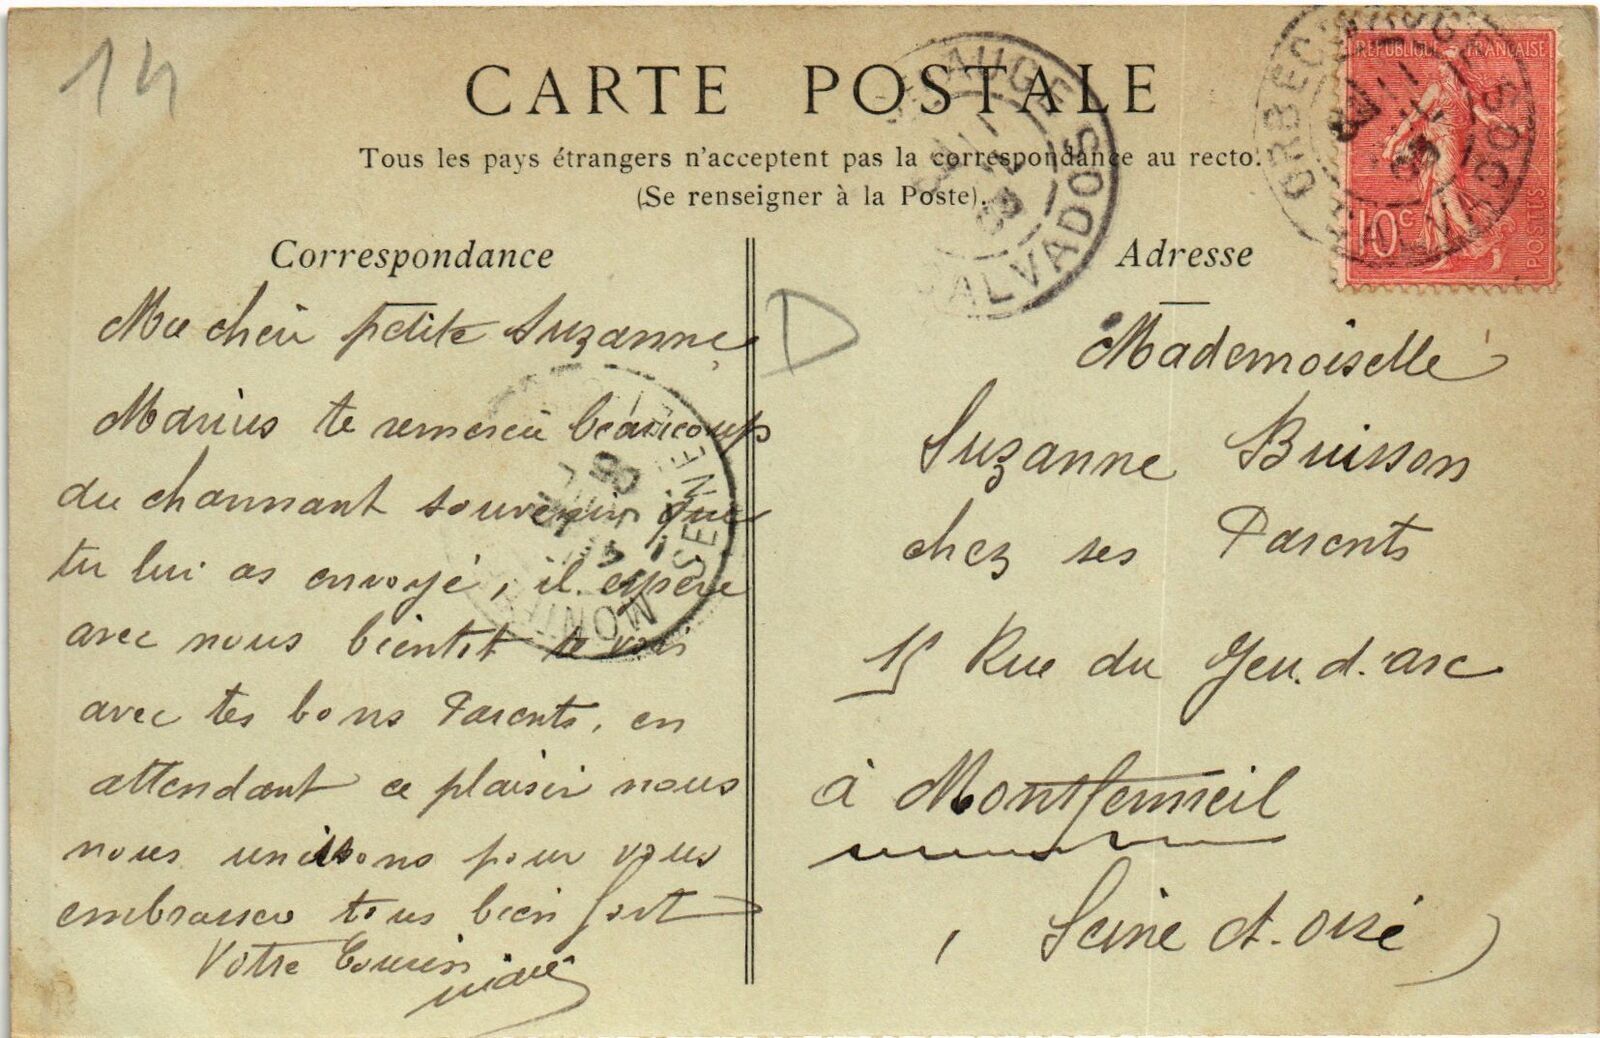 14
CARTE POSTALE
Tous les pays étrangers n'acceptent pas la correspondance au recto.
(Se renseigner à la Poste).
Correspondance
Ma cheri petite Suzanne
Marius te remercie beaucoup
du charmant souvenir que
tu lui as envoyé, il espère
avec nous bientot te voir
avec tes bons Parents, en
attendant ce plaisir nous
nous unissons pour vous
embrasser tous bien fort
Votre Cousin
D
Adresse
Mademoiselle
Suzanne Buisson
chez ses Parents
15 Rue du Jeu. d'arc
à Montfermeil
(Seine et. oise)
REPUBLIQUE FRANÇAISE
10c
POSTES
ORBEC
CALVADOS
AUGE
CALVADOS
SEINE